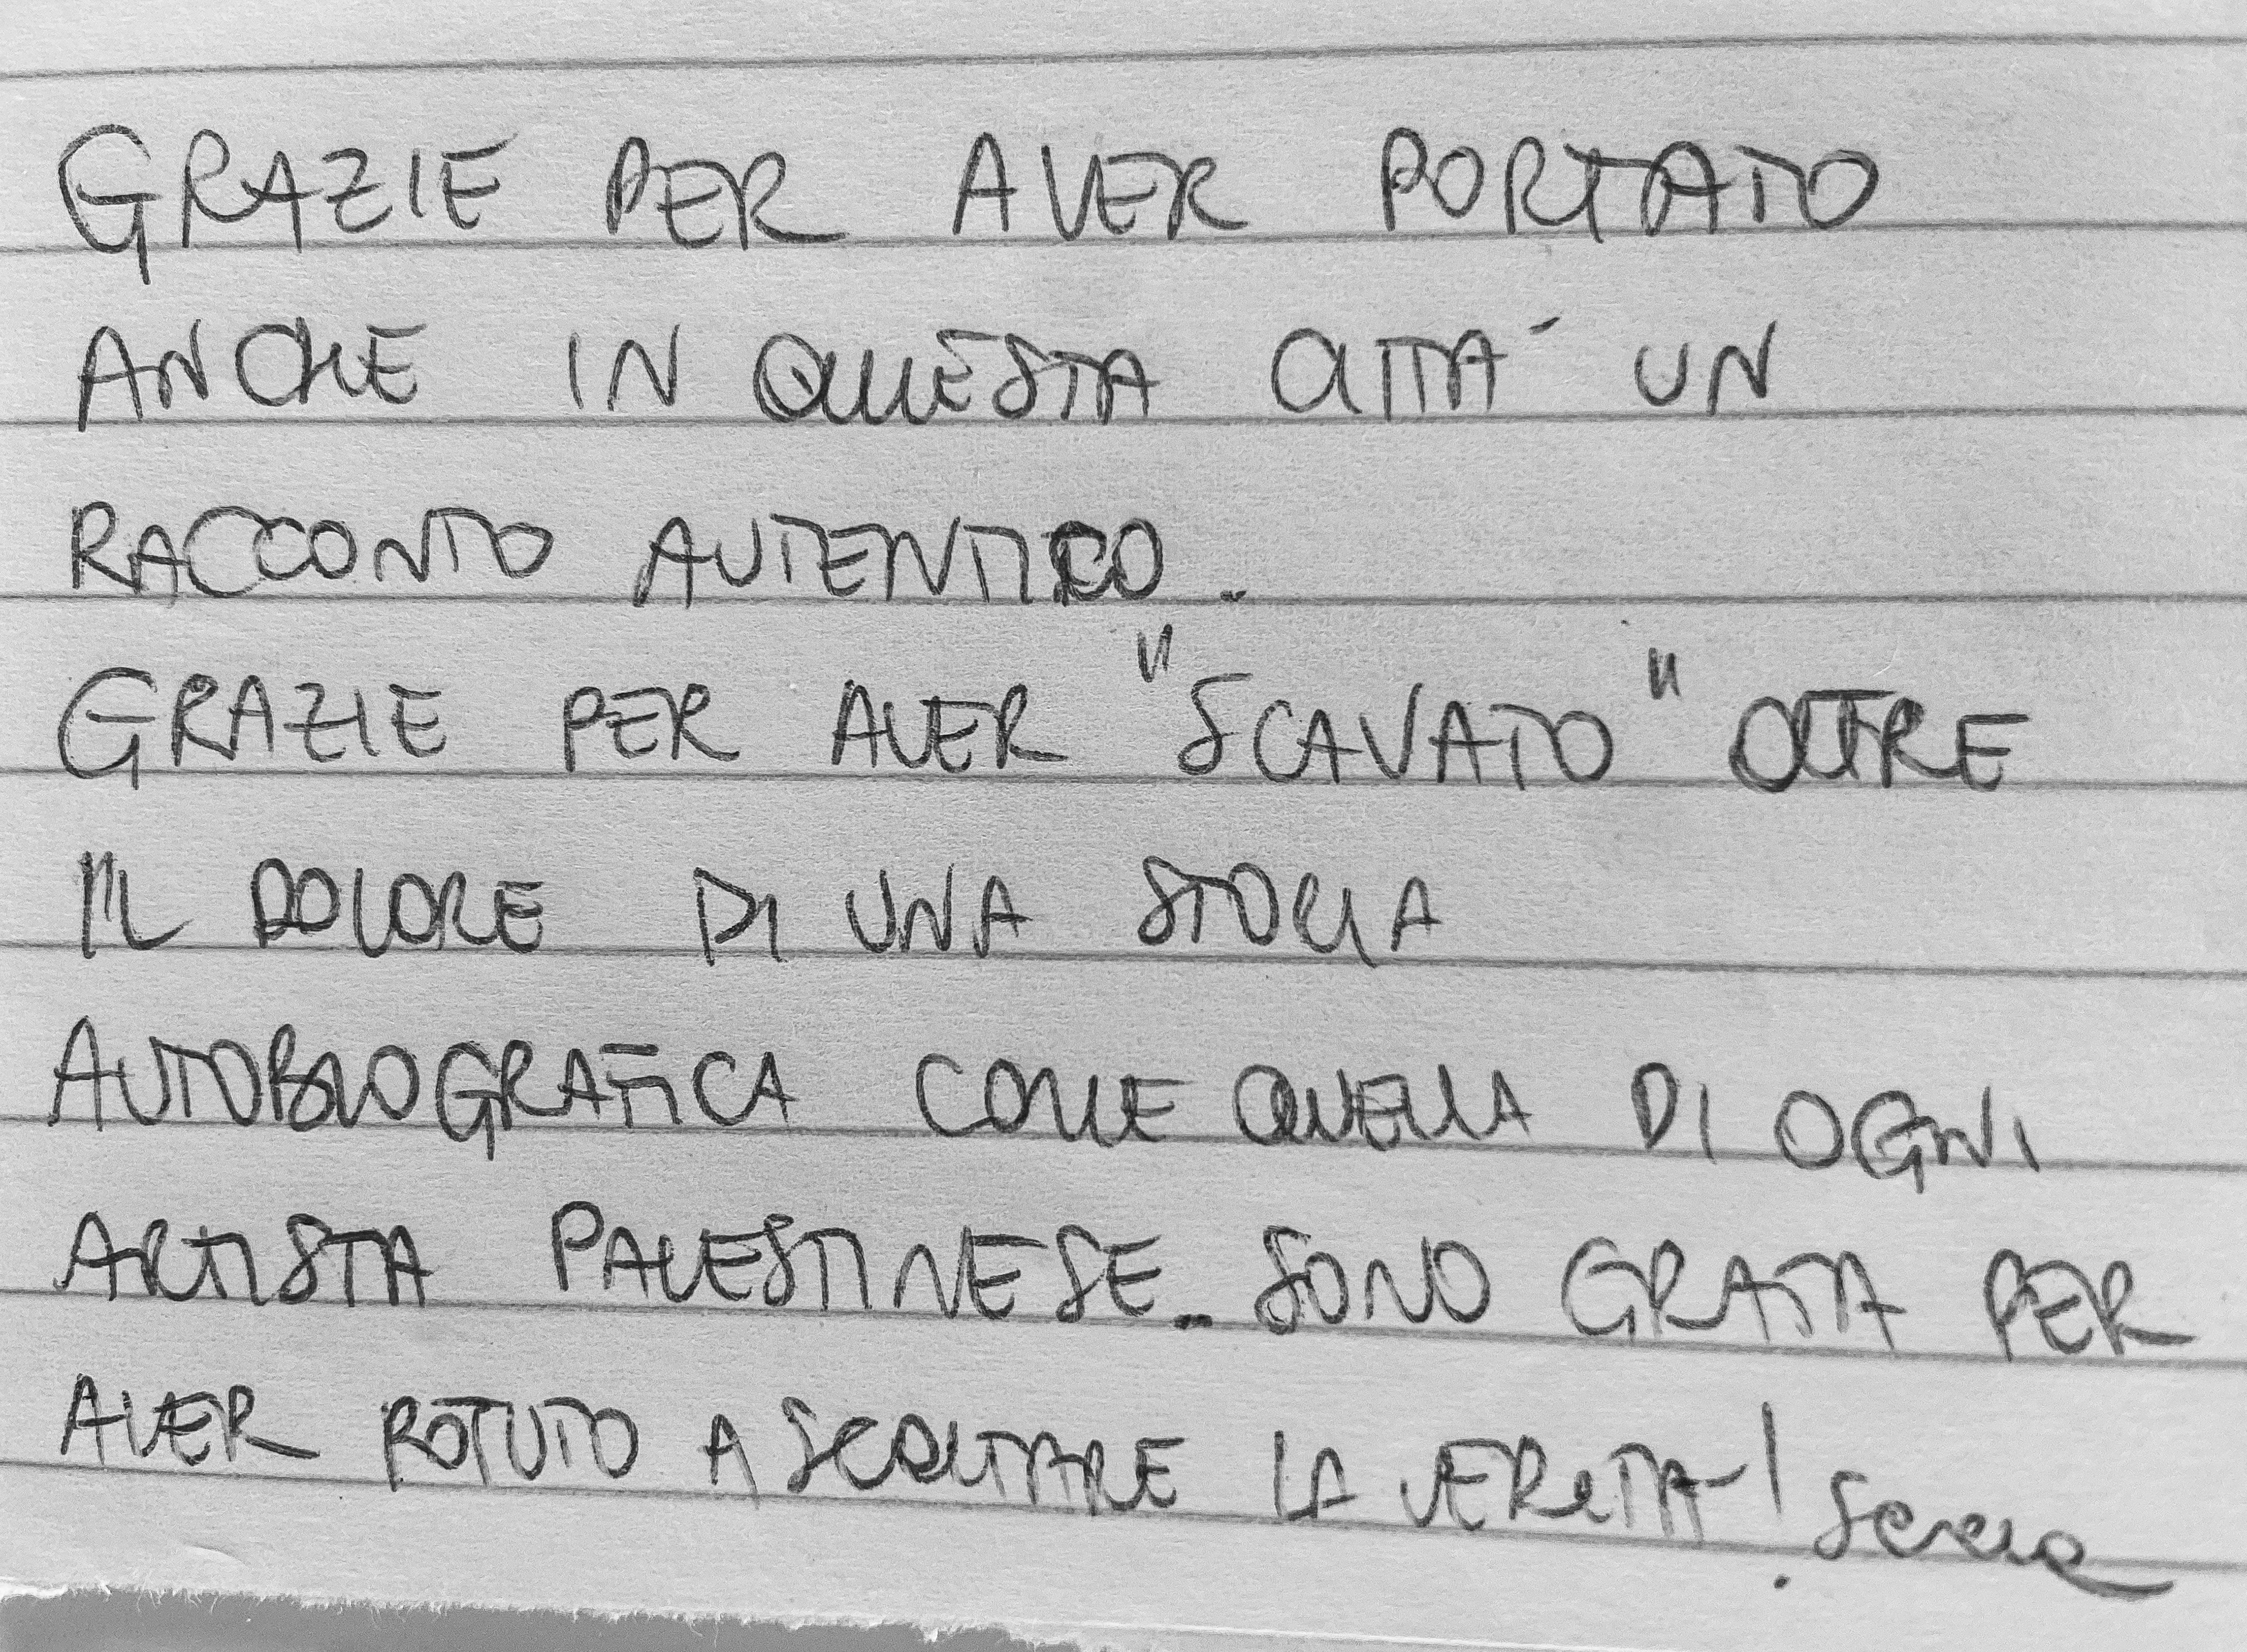 GRAZIE PER AVER PORTATO
ANCHE IN QUESTA CITTÀ UN
RACCONTO AUTENTICO.
GRAZIE PER AVER "SCAVATO" OLTRE
IL DOLORE DI UNA STORIA
AUTOBIOGRAFICA COME QUELLA DI OGNI
ARTISTA PALESTINESE. SONO GRATA PER
AVER POTUTO ASCOLTARE LA VERITÀ!